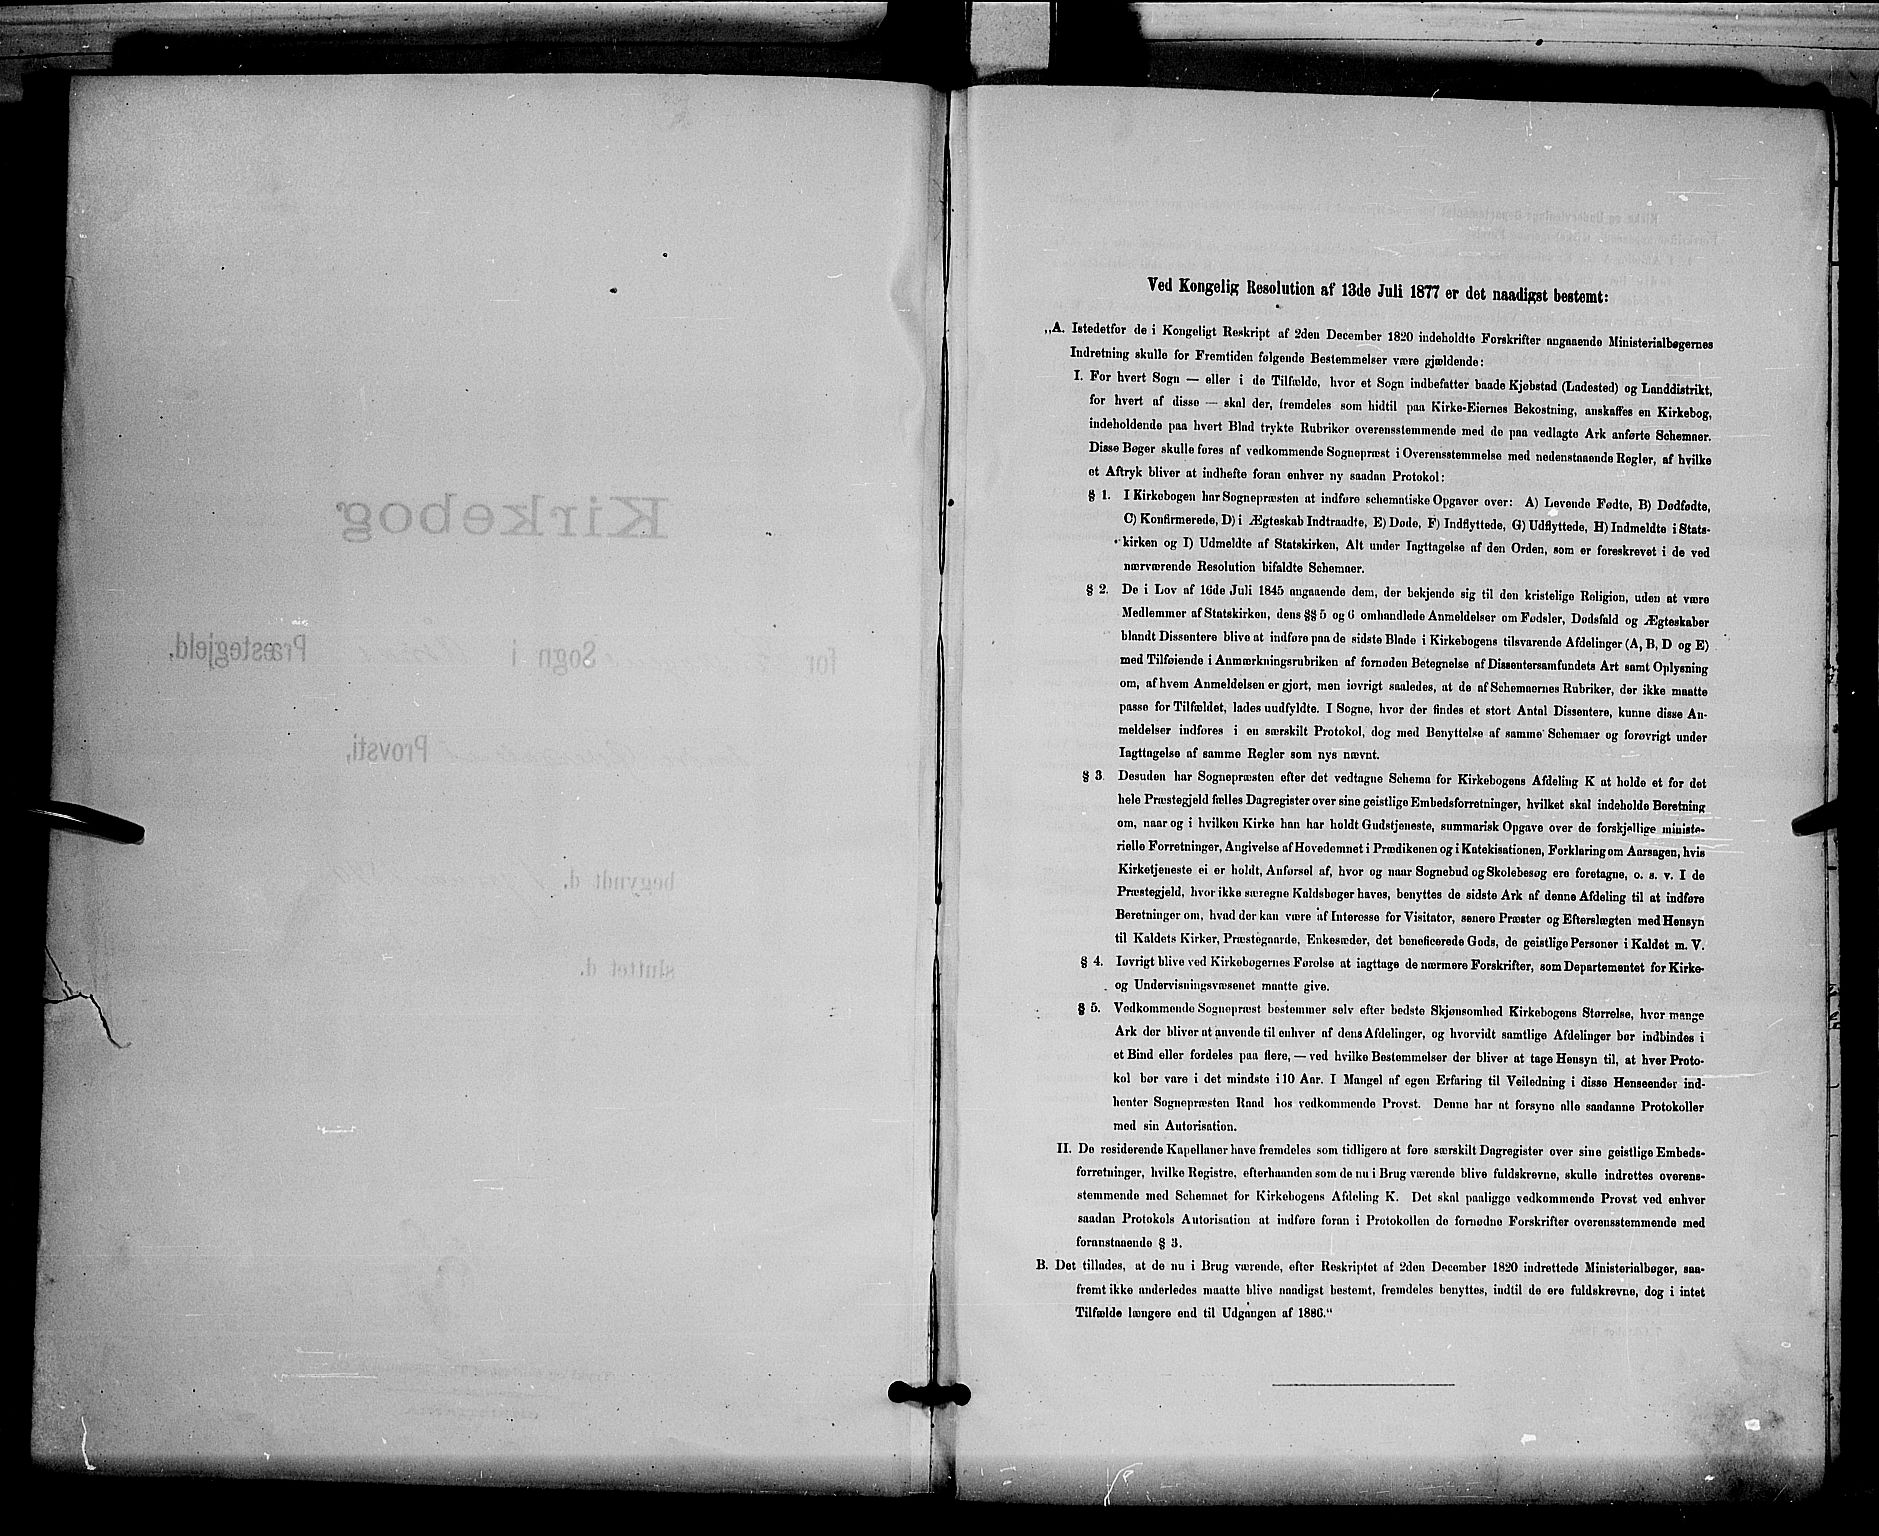 Kirkebog
for Sogn i Præstegjeld.
Provsti,
begyndt d.
sluttet d.
Ved Kongelig Resolution af 13de Juli 1877 er det naadigst bestemt:
„A. Istedetfor de i Kongeligt Reskript af 2den December 1820 indeholdte Forskrifter angaaende Ministerialbøgernes
Indretning skulle for Fremtiden følgende Bestemmelser være gjældende:
I. For hvert Sogn — eller i de Tilfælde, hvor et Sogn indbefatter baade Kjøbstad (Ladested) og Landdistrikt,
for hvert af disse — skal der, fremdeles som hidtil paa Kirke-Eiernes Bekostning, anskaffes en Kirkebog,
indeholdende paa hvert Blad trykte Rubriker overensstemmende med de paa vedlagte Ark anførte Schemaer.
Disse Bøger skulle føres af vedkommende Sognepræst i Overensstemmelse med nedenstaaende Regler, af hvilke
et Aftryk bliver at indhefte foran enhver ny saadan Protokol:
§ 1. I Kirkebogen har Sognepræsten at indføre schematiske Opgaver over: A) Levende Fødte, B) Dødfødte,
C) Konfirmerede, D) i Ægteskab Indtraadte, E) Døde, F) Indflyttede, G) Udflyttede, H) Indmeldte i Stats-
kirken og I) Udmeldte af Statskirken, Alt under Iagttagelse af den Orden, som er foreskrevet i de ved
nærværende Resolution bifaldte Schemaer.
§ 2. De i Lov af 16de Juli 1845 angaaende dem, der bekjende sig til den kristelige Religion, uden at være
Medlemmer af Statskirken, dens §§ 5 og 6 omhandlede Anmeldelser om Fødsler, Dødsfald og Ægteskaber
blandt Dissentere blive at indføre paa de sidste Blade i Kirkebogens tilsvarende Afdelinger (A, B, D og E)
med Tilføiende i Anmærkningsrubriken af fornøden Betegnelse af Dissentersamfundets Art samt Oplysning
om, af hvem Anmeldelsen er gjort, men iøvrigt saaledes, at de af Schemaernes Rubriker, der ikke maatte
passe for Tilfældet, lades uudfyldte. I Sogne, hvor der findes et stort Antal Dissentere, kunne disse An-
meldelser indføres i en særskilt Protokol, dog med Benyttelse af samme Schemaer og forøvrigt under
Iagttagelse af samme Regler som nys nævnt.
§ 3. Desuden har Sognepræsten efter det vedtagne Schema for Kirkebogens Afdeling K at holde et for det
hele Præstegjeld fælles Dagregister over sine geistlige Embedsforretninger, hvilket skal indeholde Beretning
om, naar og i hvilken Kirke han har holdt Gudstjeneste, summarisk Opgave over de forskjellige ministe-
rielle Forretninger, Angivelse af Hovedemnet i Prædikenen og i Katekisationen, Forklaring om Aarsagen, hvis
Kirketjeneste ei er holdt, Anførsel af, hvor og naar Sognebud og Skolebesøg ere foretagne, o. s. v. I de
Præstegjeld, hvor ikke særegne Kaldsbøger haves, benyttes de sidste Ark af denne Afdeling til at indføre
Beretninger om, hvad der kan være af Interesse for Visitator, senere Præster og Efterslægten med Hensyn
til Kaldets Kirker, Præstegaarde, Enkesæder, det beneficerede Gods, de geistlige Personer i Kaldet m. V.
§ 4. Iøvrigt blive ved Kirkebøgernes Førelse at iagttage de nærmere Forskrifter, som Departementet for Kirke-
og Undervisningsvæsenet maatte give.
§ 5. Vedkommende Sognepræst bestemmer selv efter bedste Skjønsomhed Kirkebogens Størrelse, hvor mange
Ark der bliver at anvende til enhver af dens Afdelinger, og hvorvidt samtlige Afdelinger bør indbindes i
et Bind eller fordeles paa flere, — ved hvilke Bestemmelser der bliver at tage Hensyn til, at hver Proto-
kol bør vare i det mindste i 10 Aar. I Mangel af egen Erfaring til Veiledning i disse Henseender ind-
henter Sognepræsten Raad hos vedkommende Provst. Denne har at forsyne alle saadanne Protokoller
med sin Autorisation.
II. De residerende Kapellaner have fremdeles som tidligere at føre særskilt Dagregister over sine geistlige Embeds-
forretninger, hvilke Registre, efterhaanden som de nu i Brug værende blive fuldskrevne, skulle indrettes overens-
stemmende med Schemaet for Kirkebogens Afdeling K. Det skal paaligge vedkommende Provst ved enhver
saadan Protokols Autorisation at indføre foran i Protokollen de fornødne Forskrifter overensstemmende med
foranstaaende § 3.
B. Det tillades, at de nu i Brug værende, efter Reskriptet af 2den December 1820 indrettede Ministerialbøger, saa-
fremt ikke anderledes maatte blive naadigst bestemt, fremdeles benyttes, indtil de ere fuldskrevne, dog i intet
Tilfælde længere end til Udgangen af 1886."